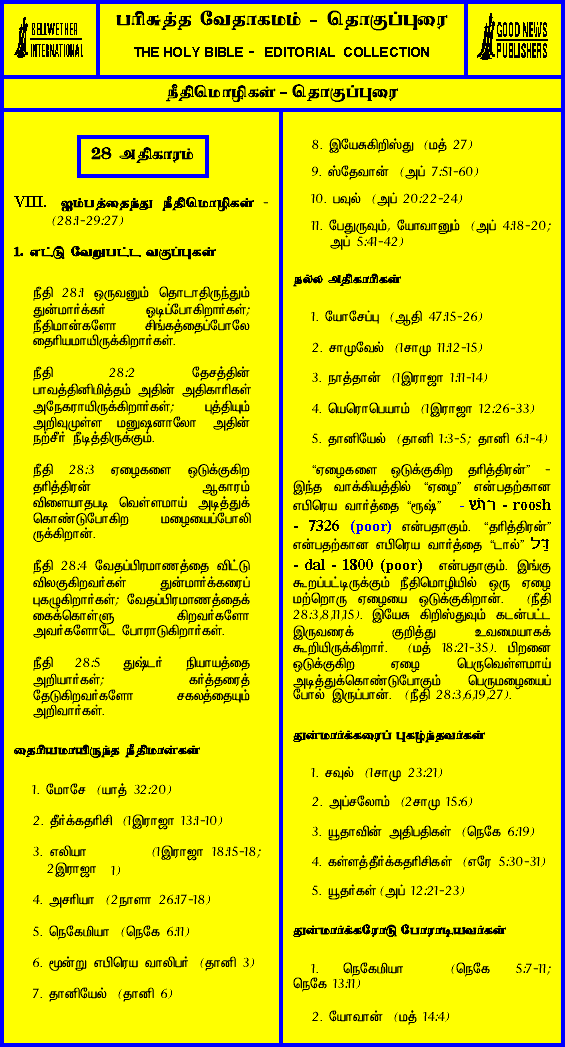 BELLWETHER
INTERNATIONAL
பரிசுத்த வேதாகமம் - தொகுப்புரை
THE HOLY BIBLE - EDITORIAL COLLECTION
GOOD NEWS
PUBLISHERS
நீதிமொழிகள் - தொகுப்புரை
28 அதிகாரம்
VIII. ஐம்பத்தைந்து நீதிமொழிகள் -
(28:1-29:27)
1. எட்டு வேறுபட்ட வகுப்புகள்
நீதி 28:1 ஒருவனும் தொடாதிருந்தும்
துன்மார்க்கர் ஓடிப்போகிறார்கள்;
நீதிமான்களோ சிங்கத்தைப்போலே
தைரியமாயிருக்கிறார்கள்.
நீதி 28:2 தேசத்தின்
பாவத்தினிமித்தம் அதின் அதிகாரிகள்
அநேகராயிருக்கிறார்கள்; புத்தியும்
அறிவுமுள்ள மனுஷனாலோ அதின்
நற்சீர் நீடித்திருக்கும்.
நீதி 28:3 ஏழைகளை ஒடுக்குகிற
தரித்திரன் ஆகாரம்
விளையாதபடி வெள்ளமாய் அடித்துக்
கொண்டுபோகிற மழையைப்போலி
ருக்கிறான்.
நீதி 28:4 வேதப்பிரமாணத்தை விட்டு
விலகுகிறவர்கள் துன்மார்க்கரைப்
புகழுகிறார்கள்; வேதப்பிரமாணத்தைக்
கைக்கொள்ளு கிறவர்களோ
அவர்களோடே போராடுகிறார்கள்.
நீதி 28:5 துஷ்டர் நியாயத்தை
அறியார்கள்; கர்த்தரைத்
தேடுகிறவர்களோ சகலத்தையும்
அறிவார்கள்.
தைரியமாயிருந்த நீதிமான்கள்
1. மோசே (யாத் 32:20)
2. தீர்க்கதரிசி (1இராஜா 13:1-10)
3. எலியா (1இராஜா 18:15-18;
2இராஜா 1)
4. அசரியா (2நாளா 26:17-18)
5. நெகேமியா (நெகே 6:11)
6. மூன்று எபிரெய வாலிபர் (தானி 3)
7. தானியேல் (தானி 6)
8. இயேசுகிறிஸ்து (மத் 27)
9. ஸ்தேவான் (அப் 7:51-60)
10. பவுல் (அப் 20:22-24)
11. பேதுருவும், யோவானும் (அப் 4:18-20;
அப் 5:41-42)
நல்ல அதிகாரிகள்
1. யோசேப்பு (ஆதி 47:15-26)
2. சாமுவேல் (1சாமு 11:12-15)
3. நாத்தான் (1இராஜா 1:11-14)
4. யெரொபெயாம் (1இராஜா 12:26-33)
5. தானியேல் (தானி 1:3-5; தானி 6:1-4)
"ஏழைகளை ஒடுக்குகிற தரித்திரன்" -
இந்த வாக்கியத்தில் "ஏழை" என்பதற்கான
எபிரெய வார்த்தை "ரூஷ்" - רוּשׁ - roosh
- 7326 (poor) என்பதாகும். "தரித்திரன்"
என்பதற்கான எபிரெய வார்த்தை "டால்" דַּל
- dal - 1800 (poor) என்பதாகும். இங்கு
கூறப்பட்டிருக்கும் நீதிமொழியில் ஒரு ஏழை
மற்றொரு ஏழையை ஒடுக்குகிறான். (நீதி
28:3,8,11,15). இயேசு கிறிஸ்துவும் கடன்பட்ட
இருவரைக் குறித்து உவமையாகக்
கூறியிருக்கிறார். (மத் 18:21-35). பிறனை
ஒடுக்குகிற ஏழை பெருவெள்ளமாய்
அடித்துக்கொண்டுபோகும் பெருமழையைப்
போல் இருப்பான். (நீதி 28:3,6,19,27).
துன்மார்க்கரைப் புகழ்ந்தவர்கள்
1. சவுல் (1சாமு 23:21)
2. அப்சலோம் (2சாமு 15:6)
3. யூதாவின் அதிபதிகள் (நெகே 6:19)
4. கள்ளத்தீர்க்கதரிசிகள் (எரே 5:30-31)
5. யூதர்கள் (அப் 12:21-23)
துன்மார்க்கரோடு போராடியவர்கள்
1. நெகேமியா (நெகே 5:7-11;
நெகே 13:11)
2. யோவான் (மத் 14:4)